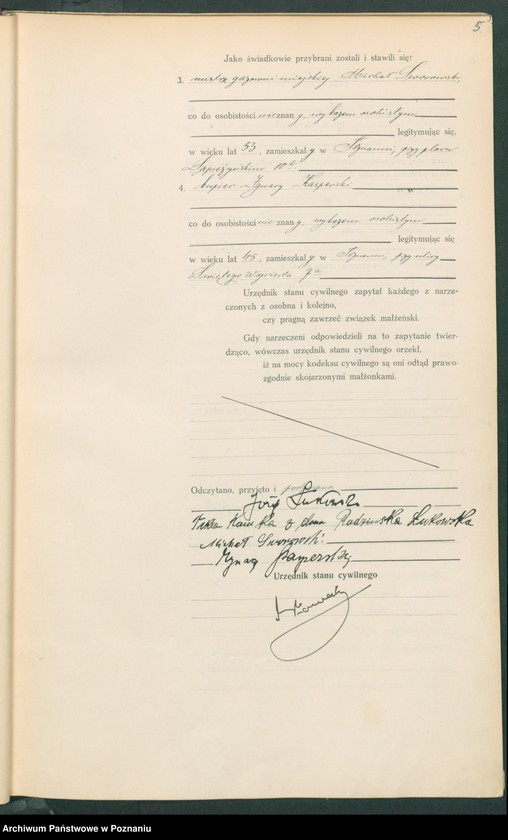 5
Jako świadkowie przybrani zostali i stawili się:
3. mistrz gazowni miejskiej Michał
co do osobistości nieznany, wykazem osobistym
legitymując się,
w wieku lat 53, zamieszkały w Poznaniu, przy placu
Sapieżyńskim 10
4. kupiec Ignacy Kasperski
co do osobistości nieznany, wykazem osobistym
legitymując się
w wieku lat 45, zamieszkały w Poznaniu, przy ulicy
Świętego Wojciecha
Urzędnik stanu cywilnego zapytał każdego z narze-
czonych z osobna i kolejno,
czy pragną zawrzeć związek małżeński.
Gdy narzeczeni odpowiedzieli na to zapytanie twier-
dząco, wówczas urzędnik stanu cywilnego orzekł,
iż na mocy kodeksu cywilnego są oni odtąd prawo-
zgodnie skojarzonymi małżonkami.
Odczytano, przyjęto i podpisano
Józef
z domu Radzimska Łukowska
Michał
Ignacy Kasperski
Urzędnik stanu cywilnego
Archiwum Państwowe w Poznaniu